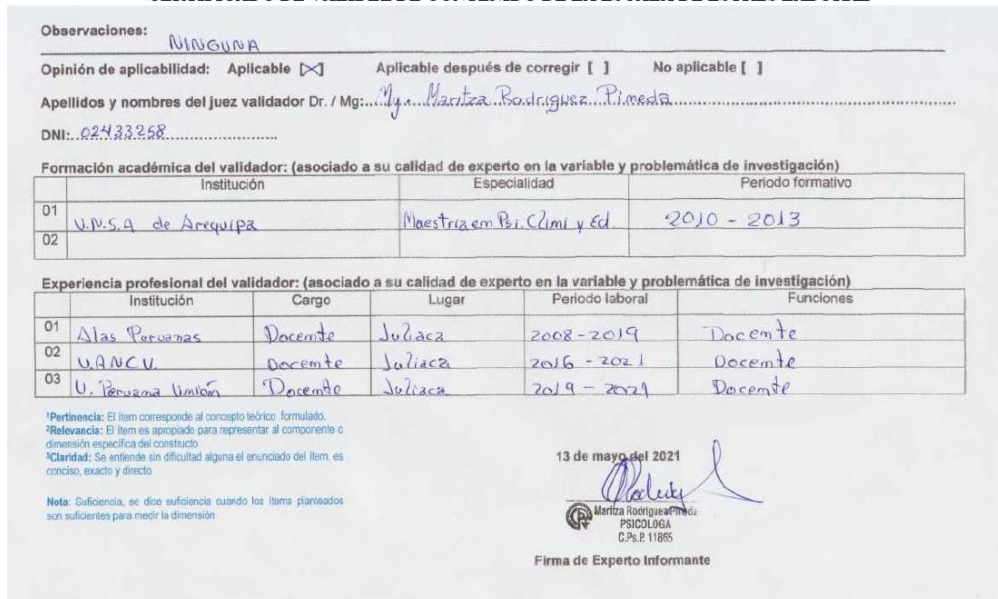 Observaciones: NINGUNA
Opinión de aplicabilidad: Aplicable [X] Aplicable después de corregir [ ] No aplicable [ ]
Apellidos y nombres del juez validador Dr. / Mg:...Mg. Maritza Rodriguez Pimeda
DNI:..02433258
Formación académica del validador: (asociado a su calidad de experto en la variable y problemática de investigación)
Institución Especialidad Periodo formativo
01 U.N.S.A de Arequipa Maestria em Psi. Climi y Ed 2010 - 2013
02
Experiencia profesional del validador: (asociado a su calidad de experto en la variable y problemática de investigación)
Institución Cargo Lugar Periodo laboral Funciones
01 Alas Peruanas Docemte Juliaca 2008-2019 Docemte
02 U.ANCV. Docemte Juliaca 2016 - 2021 Docemte
03 U. Peruama Umióm Docemte Juliaca 2019 - 2021 Docemte
¹Pertinencia: El ítem corresponde al concepto teórico formulado.
²Relevancia: El ítem es apropiado para representar al componente o
dimensión específica del constructo
³Claridad: Se entiende sin dificultad alguna el enunciado del ítem, es
conciso, exacto y directo
Nota: Suficiencia, se dice suficiencia cuando los ítems planteados
son suficientes para medir la dimensión
13 de mayo del 2021
Maritza Rodriguez Pineda
PSICOLOGA
C.Ps.P. 11865
Firma de Experto Informante